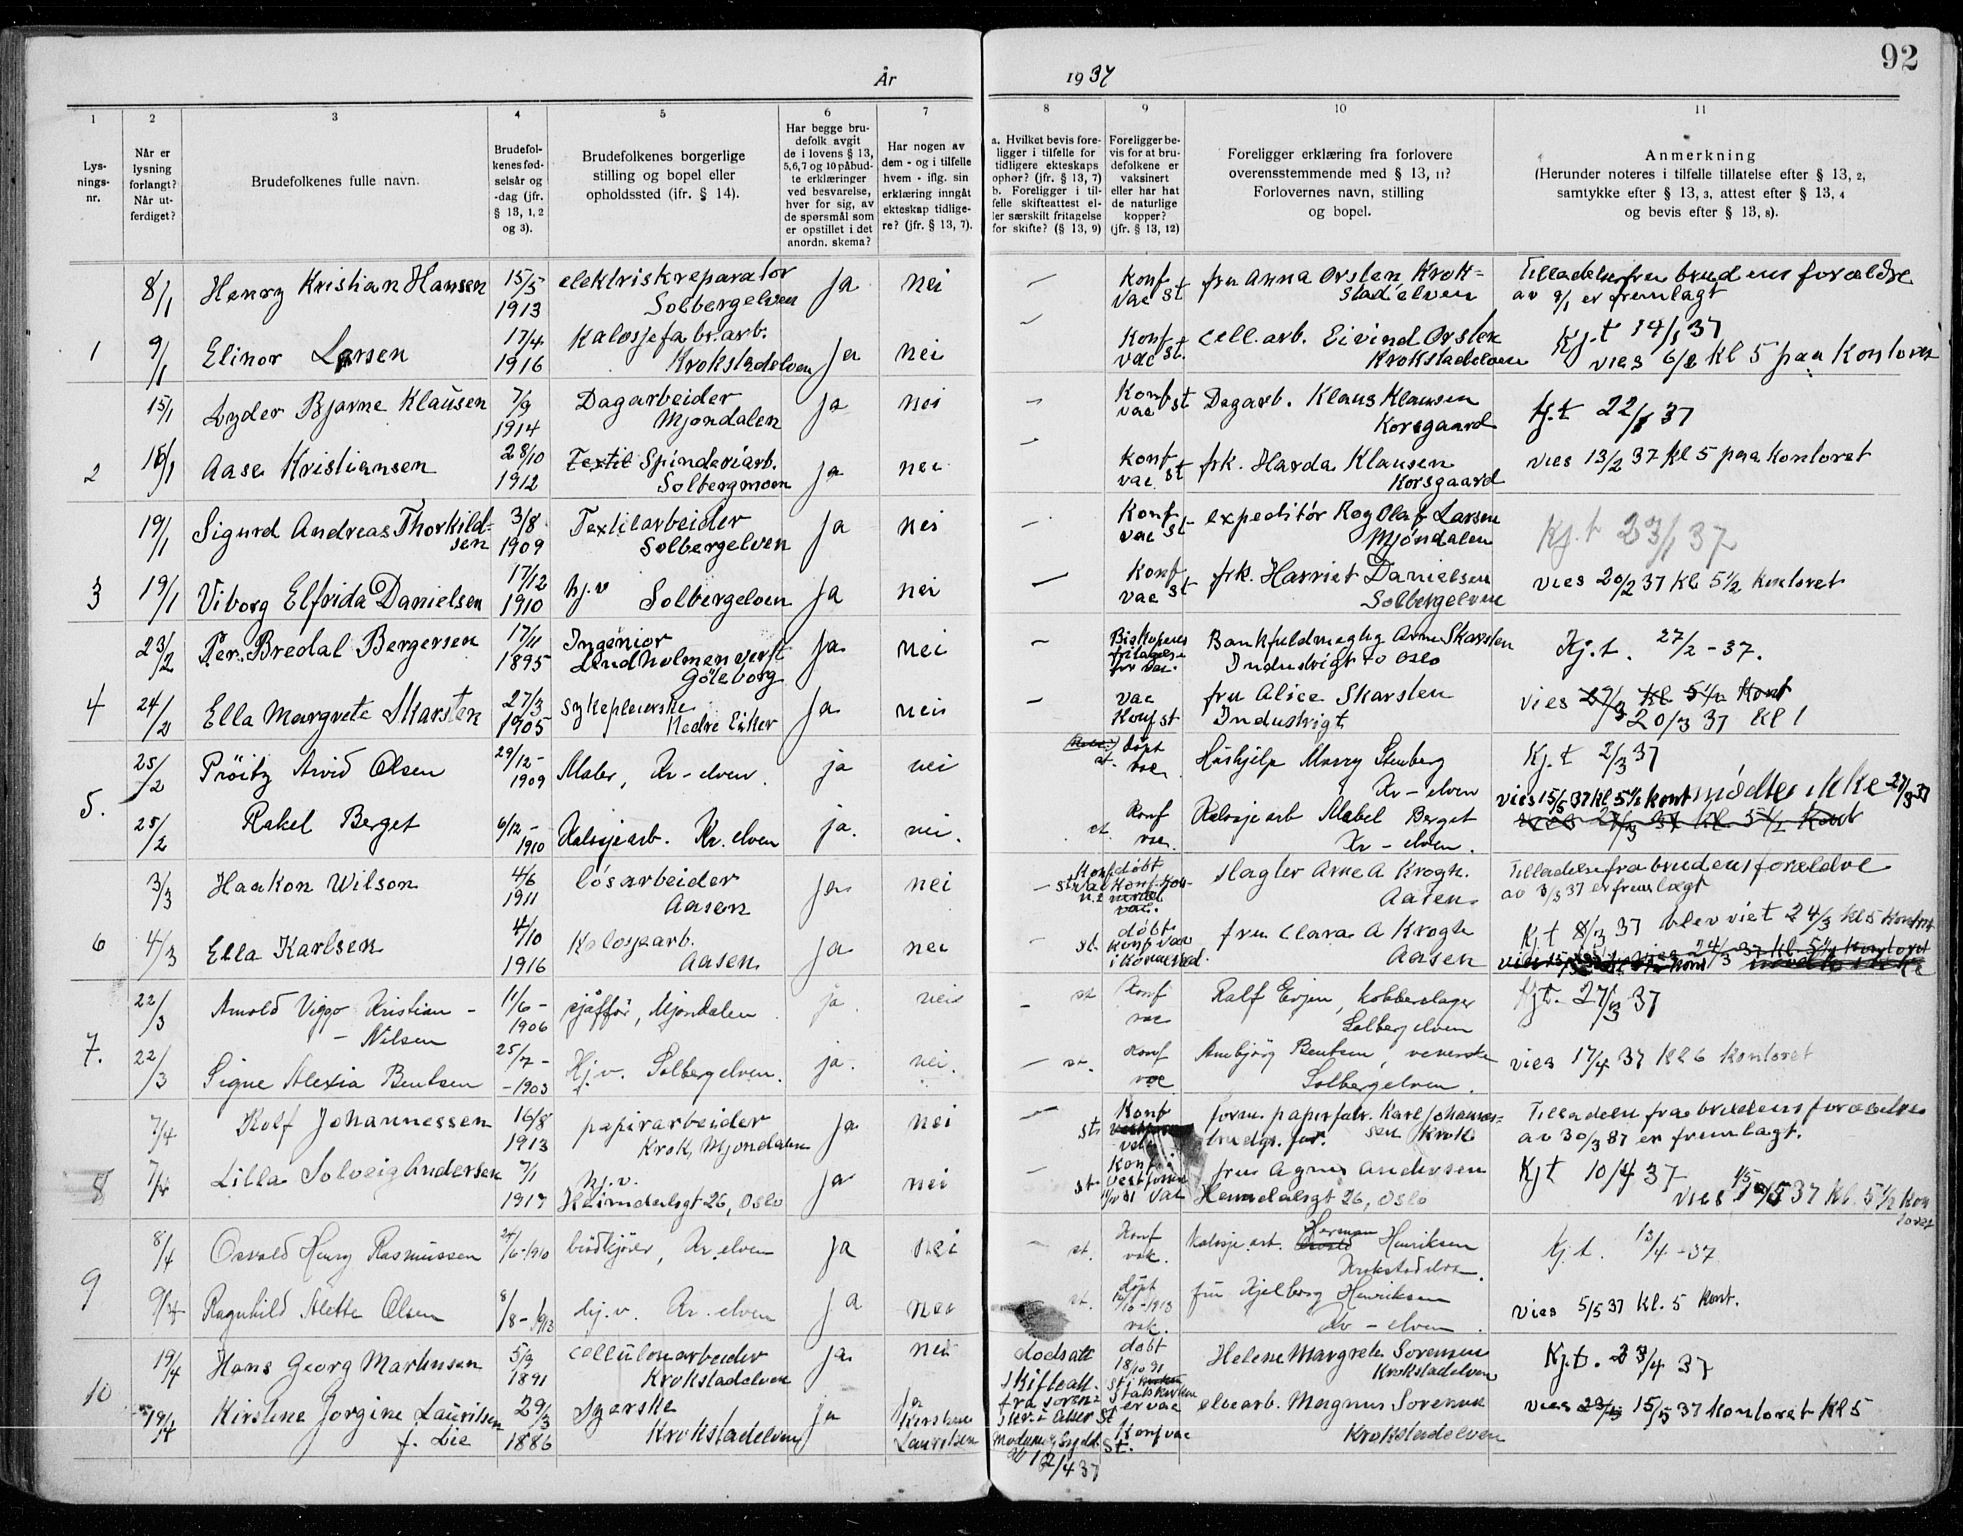 92
År 1937
1 2 3 4 5 6 7 8 9 10 11
Lys-
nings-
nr.
Når er
lysning
forlangt?
Når ut-
ferdiget?
Brudefolkenes fulle navn.
Brudefol-
kenes fød-
selsår og
-dag (jfr.
§ 13, 1, 2
og 3).
Brudefolkenes borgerlige
stilling og bopel eller
opholdssted (jfr. § 14).
Har begge bru-
defolk avgit
de i lovens § 13,
5,6,7 og 10 påbud-
te erklæringer
ved besvarelse,
hver for sig, av
de spørsmål som
er opstillet i det
anordn. skema?
Har nogen av
dem - og i tilfelle
hvem - iflg. sin
erklæring inngått
ekteskap tidlige-
re? (jfr. § 13, 7).
a. Hvilket bevis fore-
ligger i tilfelle for
tidligere ekteskaps
ophør? (jfr. § 13, 7)
b. Foreligger i til-
felle skifteattest el-
ler særskilt fritagelse
for skifte? (§ 13, 9)
Foreligger be-
vis for at bru-
defolkene er
vaksinert
eller har hat
de naturlige
kopper?
(jfr. § 13, 12)
Foreligger erklæring fra forlovere
overensstemmende med § 13, 11?
Forlovernes navn, stilling
og bopel.
Anmerkning
(Herunder noteres i tilfelle tillatelse efter § 13, 2,
samtykke efter § 13, 3, attest efter § 13, 4
og bevis efter § 13, 8).
8/1 Henry Kristian Hansen 15/5 1913 elektriskreparatør Solbergelven ja nei — Konf vac st fru Anna Orsten, Krok=
stadelven Tilladelse fra brudens forældre
av 9/1 er fremlagt
1 9/1 Elinor Larsen 17/4 1916 Kalosjefabr.arb. Krokstadelven ja nei — Konf vac st. cell.arb. Eivind Orsten
Krokstadelven Kj.t 14/1 37
vies 6/2 kl 5 paa Kontoret
15/1 Lyder Bjarne Klausen 7/9 1914 Dagarbeider Mjøndalen ja nei — Konf vac st Dagarb. Klaus Klausen
Korsgaard Kj.t 22/1 37
2 15/1 Aase Kristiansen 28/10 1912 Textil Spinderiarb. Solbergmoen ja nei — Konf vac st frk. Harda Klausen
Korsgaard vies 13/2 37 kl 5 paa kontoret
19/1 Sigurd Andreas Thorkild-
sen 3/8 1909 Textilarbeider Solbergelven ja nei — Konf vac st expeditør Roy Olaf Larsen
Mjøndalen Kj.t 23/1 37
3 19/1 Viborg Elfrida Danielsen 17/12 1910 hj.v Solbergelven ja nei — Konf vac st frk. Harriet Danielsen
Solbergelven vies 20/2 37 kl 5½ kontoret
23/2 Per Bredal Bergersen 17/11 1895 Ingeniør Lindholmen verft Göteborg ja nei — Biskopens fritagelse for vac. Bankfuldmegtig Arne Skarsten
Industrigt 70 Oslo Kj.t. 27/2 - 37.
4 24/2 Ella Margrete Skarsten 27/3 1905 sykepleierske Nedre Eiker ja nei — vac Konf st fru Alice Skarsten
Industrigt vies 27/3 kl 5½ kont
20/3 37 kl 1
25/2 Prøitz Arvid Olsen 29/12 - 1909 Maler, Kr-elven. ja nei st. døpt vac Hushjelp Marry Stenberg
Kr-elven Kj.t 2/3 37
5. 25/2 Rakel Berget 6/12 - 1910 Kalosjearb. Kr.elven ja. nei. st. Konf vac. Kalosjearb Mabel Berget
Kr-elven. vies 15/5 37 kl 5½ kont mødte ikke 27/3 37
vies 27/3 37 kl. 5½ kont
3/3 Haakon Wilson 4/6 1911 løsarbeider Aasen ja nei — st døbt Konf vac slagter Arne A Krogh.
Aasen. Tilladelse fra brudens forældre
av 3/3 37 er fremlagt
6 4/3 Ella Karlsen 4/10 1916 Kalosjearb. Aasen. ja nei — st. døbt konf vac fru Clara A Krogh
Aasen Kj.t 8/3 37 blev viet 24/3 kl 5 Kontoret
22/3 Arnold Viggo Kristian -
- Nilsen 11/6 - 1906 sjåffør, Mjøndalen ja nei — st Konf vac Ralf Evjen, kobberslager
Solbergelven Kj.t. 27/3 37
7. 22/3 Signe Alexia Bentsen 25/7 - 1903 Hj.v. Solbergelven. ja. nei. — st. Konf vac Annbjörg Bentsen, veverske
Solbergelven. vies 17/4 37 Kl 6 kontoret
7/4 Rolf Johannessen 16/8 1913 papirarbeider Krok, Mjøndalen ja nei — st Konf vac form. papirfabr. Karl Johannes-
sen Krok brudgs. far. Tilladelse fra brudens forældre
av 30/3 37 er fremlagt.
8 7/4 Lilla Solveig Andersen 7/1 1917 hj.v. Heimdalsgt 26, Oslo ja nei — st Konf i vestfossen 11/10 31 vac fru Agnes Andersen
Hemdalsgt 26, Oslo Kjt 10/4 37
vies 15/5 37 Kl. 5½ Kon
toret
8/4 Osvald Henry Rasmussen 24/6 - 1910 brødkjører, Kr.elven ja nei — st. Konf vak. Kalosje arb. Herman Henriksen
Krokstadelva. Kj.t. 13/4 - 37
9 9/4 Ragnhild Alette Olsen 8/8 - 1913 hj.v. Kr.elven ja nei st. døpt 12/10 - 1913 vak. fru Hjelberg Henriksen
Kr-elven. vies 5/5 37 Kl. 5 Kont.
19/4 Hans Georg Martinsen 5/9 1891 cellulosearbeider Krokstadelven ja nei dødsatt
skifteatt.
fra soren=
skr. i døbt 18/10 91 st i statskirken er vac Helene Margrete Sorensen
Krokstadelven Kj.t. 23/4 37
10 19/4 Kirstine Jorgine Lauritsen
f. Lie 29/3 1886 Syerske Krokstadelven ja ja Kirstine Lauritsen
12/4 37 st. Konf vac elvearb. Magnus Sorensen
Krokstadelven vies 15/5 37 kontoret kl 5